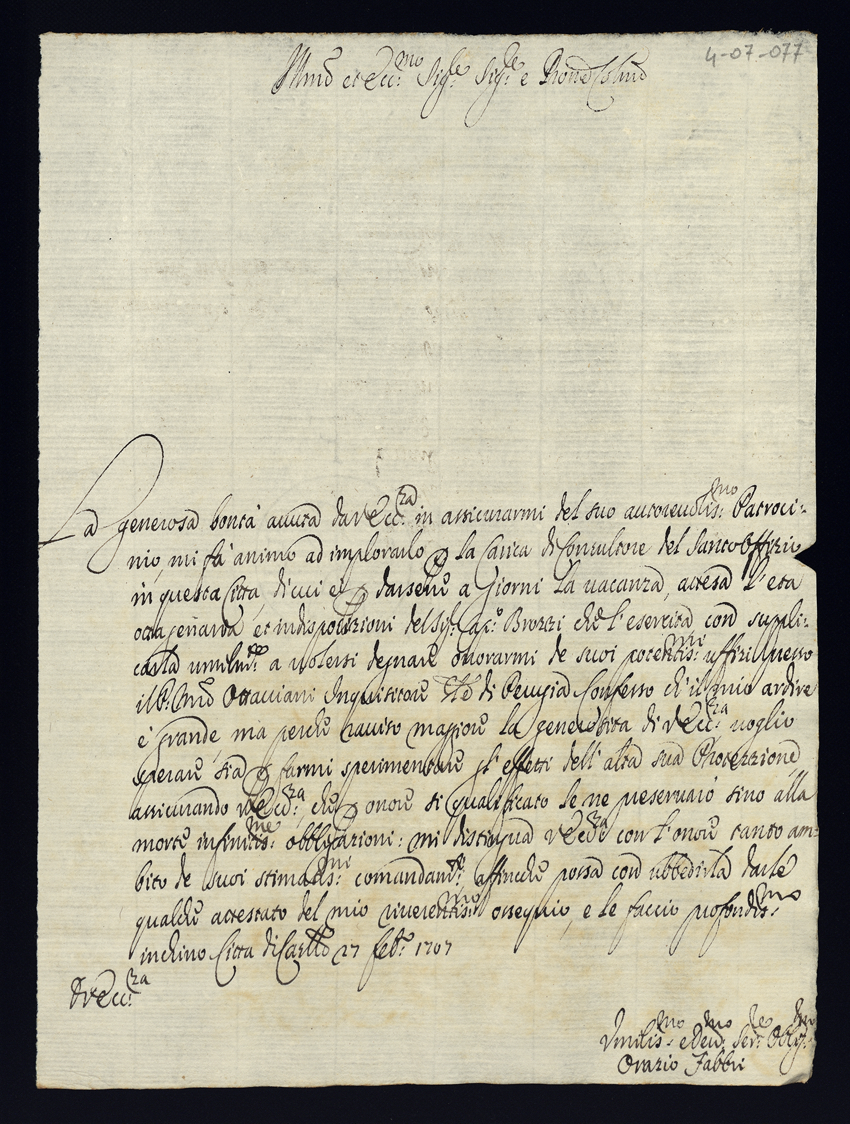 4-07-077
Ill.mo et Ecc.mo Sig.re Sig.re e Prone Col.mo
La generosa bontà auuta da V Ecc.za in assicurarmi del suo autoreuolis.mo Patroci-
nio, mi fà animo ad implorarlo p la Carica di Consultore del Santo Offizio
in questa Città, di cui è p darsene a Giorni la uacanza, attesa l'età
ottagenaria et indisposizioni del Sig.r Cap.o Brozzi che l'esercita con suppli-
carla umilm.te a uolersi degnare onorarmi de suoi potentis.mi uffizi presso
il P. Mro Ottauiani Inquisitore di Perugia Confesso ch'il mio ardire
è grande, ma perche hauuto maggiore la generosità di V Ecc.za uoglio
sperare sia p farmi sperimentare gl'effetti dell'alta sua Protezzione,
assicurando V Ecc.za, che p onore si qualificato le ne preseruarò sino alla
morte infinitis.me obbligazioni: mi distingua V Ecc.za con l'onore tanto am-
bito de suoi stimatis.mi comandam.ti affinche possa con ubbedirla darle
qualche attestato del mio riuerentis.mo ossequio, e le faccio profondis.mo
inchino Città di Castello 27 feb.o 1707
D V Ecc.za
Vmilis.mo e Deu.mo Ser.re Oblig.mo
Orazio Fabbri